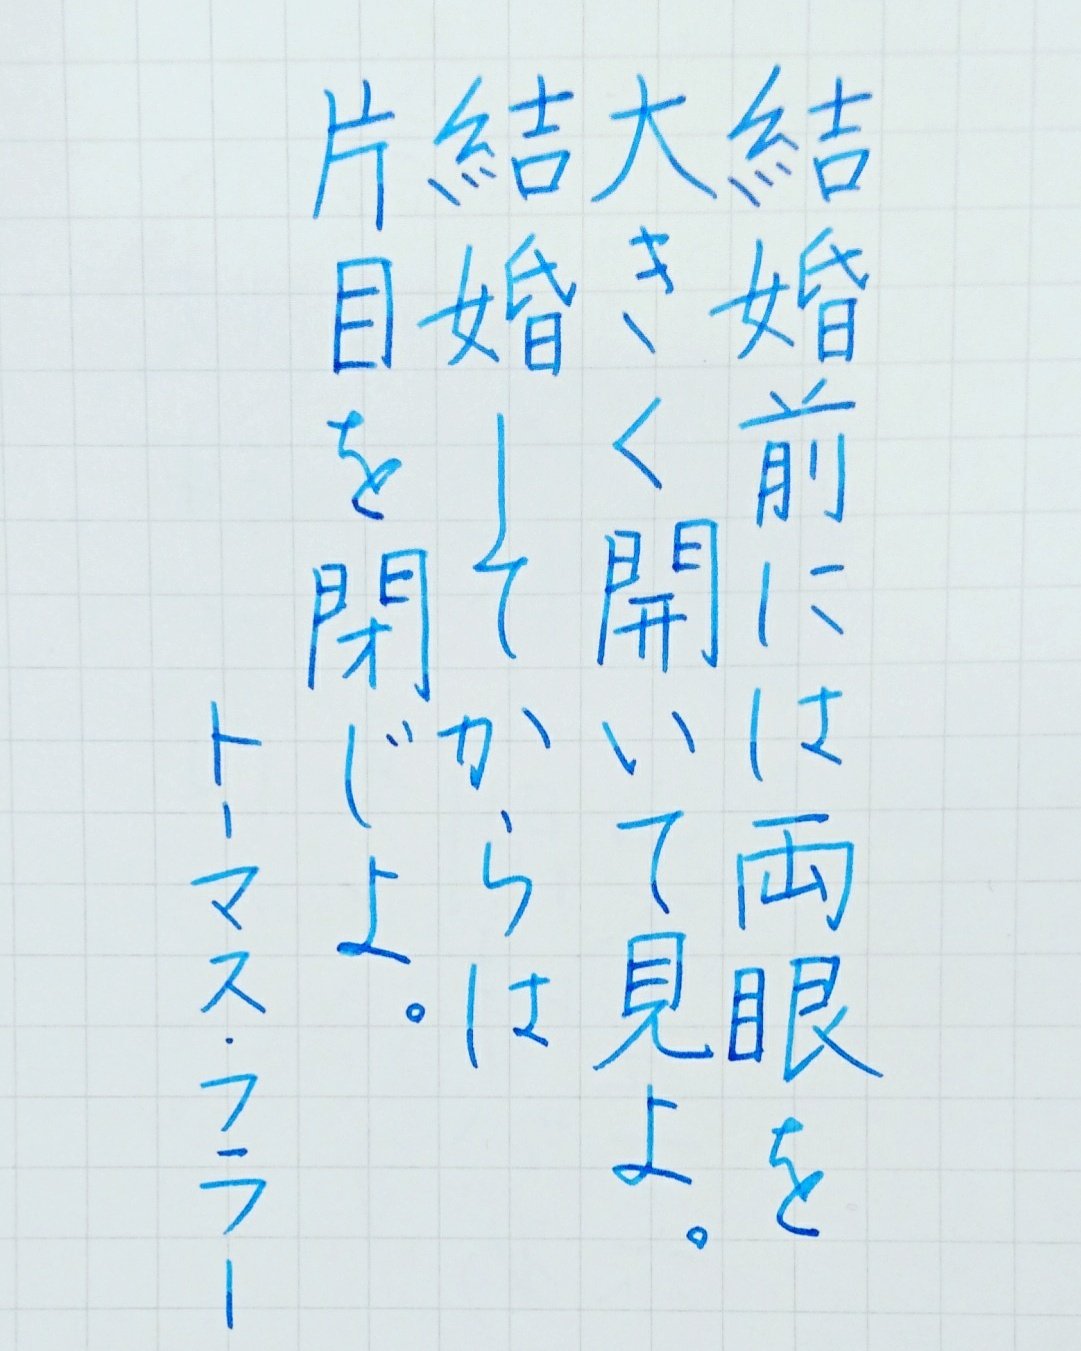 結婚前には両眼を
大きく開いて見よ。
結婚してからは
片目を閉じよ。
トーマス・フラー